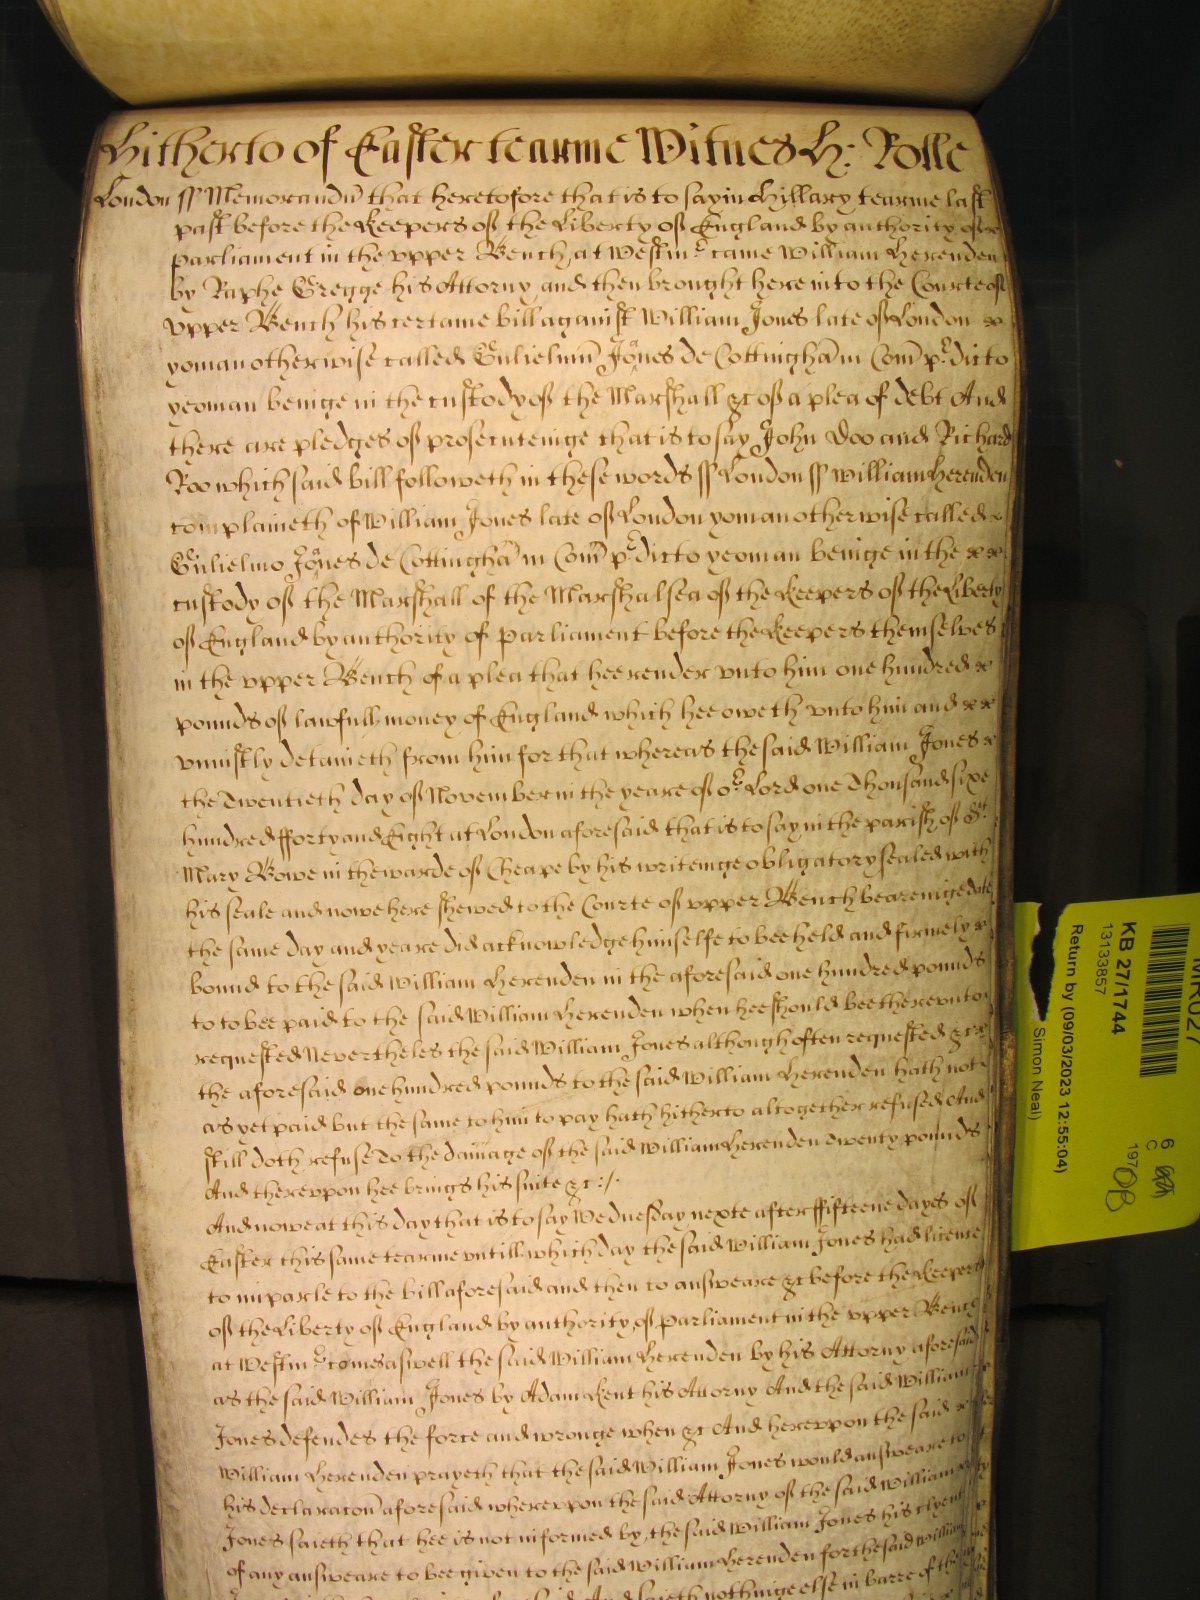 Hitherto of Easter tearme Witnes H: Rolle
London ss Memorandu that heretofore that is to say in Hillary tearme last
past before the Keepers of the Liberty of England by authority of
parliament in the vpper Bench at Westmr came William Herenden
by Raphe Gregge his Attorny and then brought here into the Courte of
vpper Bench his certaine bill against William Jones late of London
yoman otherwise called Gulielmu Jones de Cottingham in Com pr dicto
yeoman beinge in the custody of the Marshall &c of a plea of debt And
there are pledges of prosecuteinge that is to say John Doo and Richard
Roo which said bill followeth in these words ss London ss William Herenden
complaineth of William Jones late of London yoman otherwise called
Gulielmo Jones de Cottingha in Com pr dicto yeoman beinge in the
custody of the Marshall of the Marshalsea of the Keepers of the Liberty
of England by authority of parliament before the Keepers themselves
in the vpper Bench of a plea that hee render vnto him one hundred
pounds of lawfull money of England which hee oweth vnto him and
vniustly detaineth from him for that whereas the said William Jones
the Twentieth day of November in the yeare of or Lord one Thousand sixe
hundred fforty and Eight at London aforesaid that is to say in the parish of St
Mary Bowe in the warde of Cheape by his writeinge obligatory sealed with
his seale and nowe here shewed to the Courte of vpper Bench beareinge date
the same day and yeare did acknowledge himselfe to bee held and firmely
bound to the said William Herenden in the aforesaid one hundred pounds
to to bee paid to the said William Herenden when hee should bee therevnto
requested Nevertheles the said William Jones although often requested &c
the aforesaid one hundred pounds to the said William Herenden hath not
as yet paid but the same to him to pay hath hitherto altogether refused And
still doth refuse To the damage of the said William Herenden Twenty pounds
And therevpon hee brings his suite &c :/.
And nowe at this day that is to say Wednesday nexte after ffifteene dayes of
Easter this same tearme vntill which day the said William Jones had licence
to imparle to the bill aforesaid and then to answeare &c before the Keepers
of the Liberty of England by authority of parliament in the vpper Bench
at Westmr comes aswell the said William Herenden by his Attorny aforesaid
as the said William Jones by Adam Kent his Attorny And the said William
Jones defendes the force and wronge when &c And herevpon the said
William Herenden prayeth that the said William Jones would answeare to
his declaracon aforesaid wherevpon the said Attorny of the said William
Jones saieth that hee is not informed by the said William Jones his clyent
of any answeare to bee given to the said William Herenden for the said William
And saieth nothinge else in barre of the
MR027
KB 27/1744
13133857
Return by (09/03/2023 12:55:04)
Simon Neal)
6
C
197